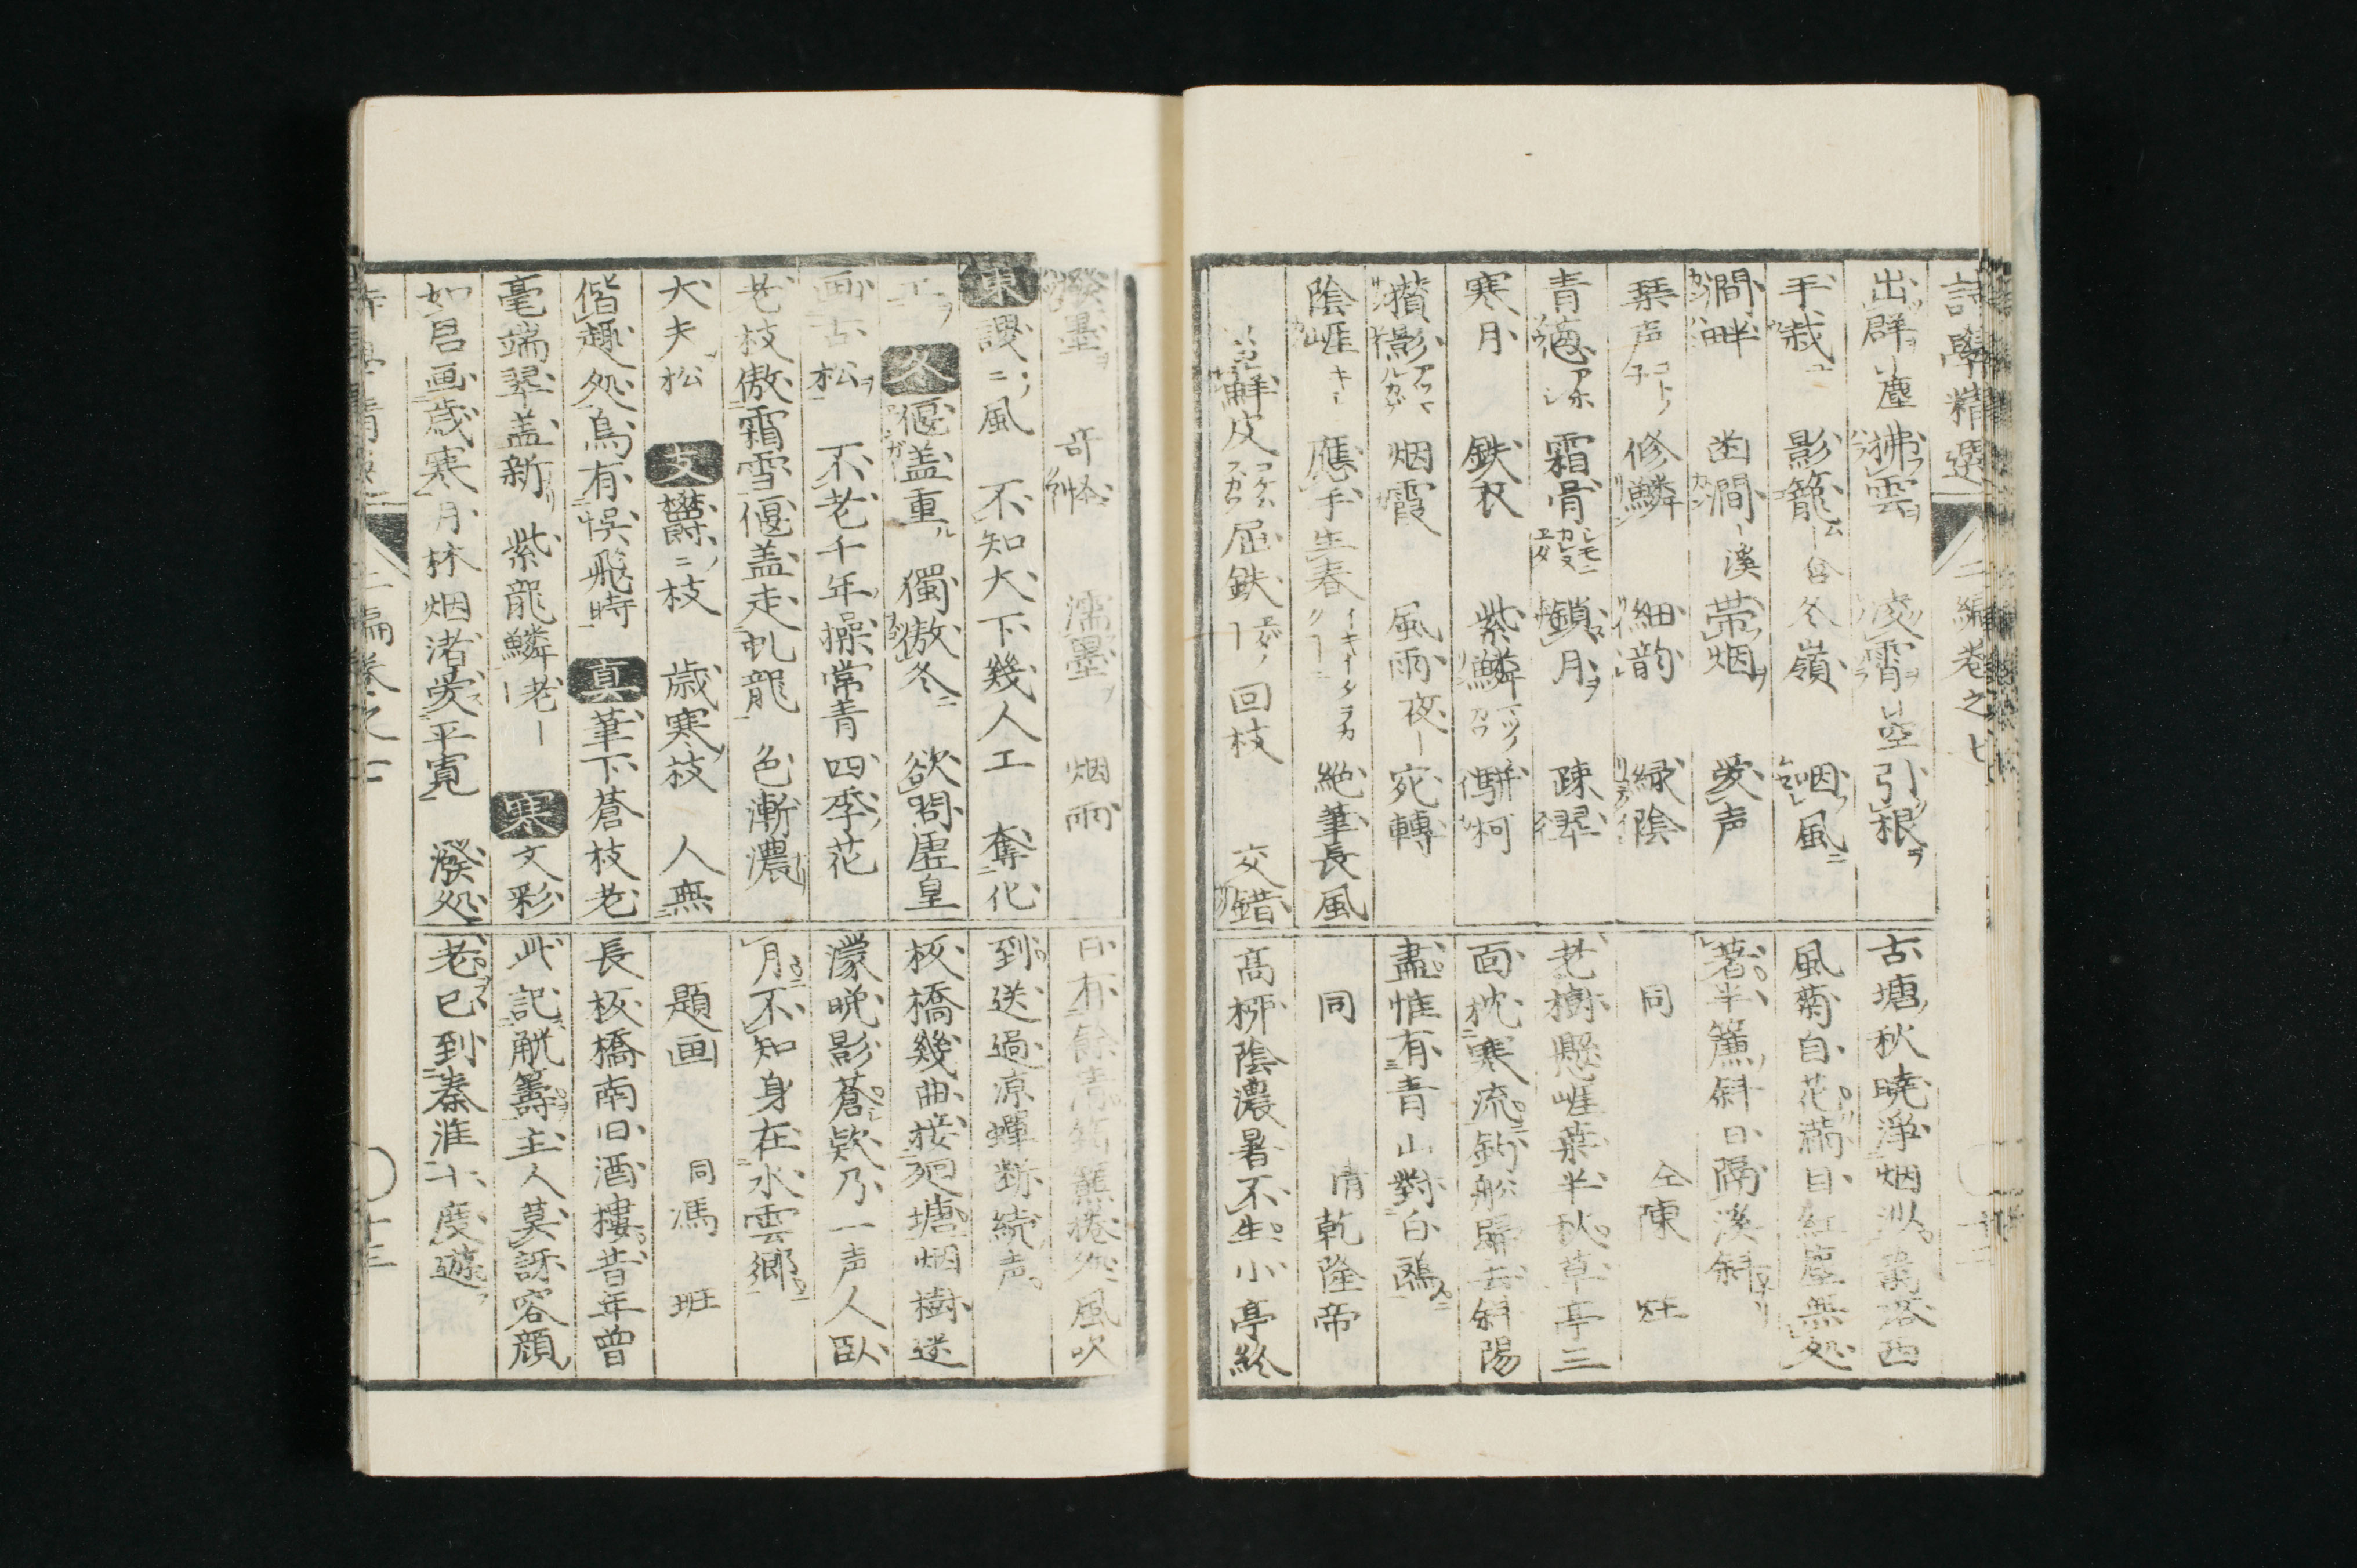 詩學精選 二編卷之七
出群 塵 拂雲 凌霄 空 引根
手栽 影籠 冬嶺 烟風
澗畔 幽澗 溪 帯烟 愛声
琴声 コトノ 修鱗 細韵 緑陰
青葱 アホシ 霜骨 鎖月 疎翠
寒月 鉄衣 紫鱗 マツノカワ 駢柯
烟霞 風雨夜 宛轉
陰崖 應手生春 絶筆長風
蘚皮 屈鉄 回枝 交錯
古塘秋暁淨烟沙
風菊白花満目紅塵無処
著半簾斜日隔溪斜
同 仝陳
老樹懸崖葉半秋草亭三
面枕寒流釣舩歸去斜陽
盡惟有青山對白鷗
同 清乾隆帝
高柳陰濃暑不生小亭終
潑墨 奇怪 濡墨 烟雨
東 謖ニ風 不知大下幾人工 奪化
工 冬 偃盖重 獨傲冬 欲問虚皇
画古松 不老千年操常青四季花
老枝傲霜雪偃盖走虬龍 色漸濃
大夫松 支 欝ニ枝 歳寒枝 人無
偕趣処烏有悞飛時 真 筆下蒼枝老
毫端翠盖新 紫龍鱗 老 寒 文彩
如君画歳寒月林烟渚愛平寛 潑処
日有餘清 捲処風吹
到送過凉蟬断続声
板橋幾曲接廻塘烟樹迷
濛晩影蒼欵乃一声人臥
月不知身在水雲郷
題画 同馮 班
長板橋南旧酒樓昔年曽
此記觥籌主人莫訝容顔
老已到秦淮十度遊
二編卷之七 十三